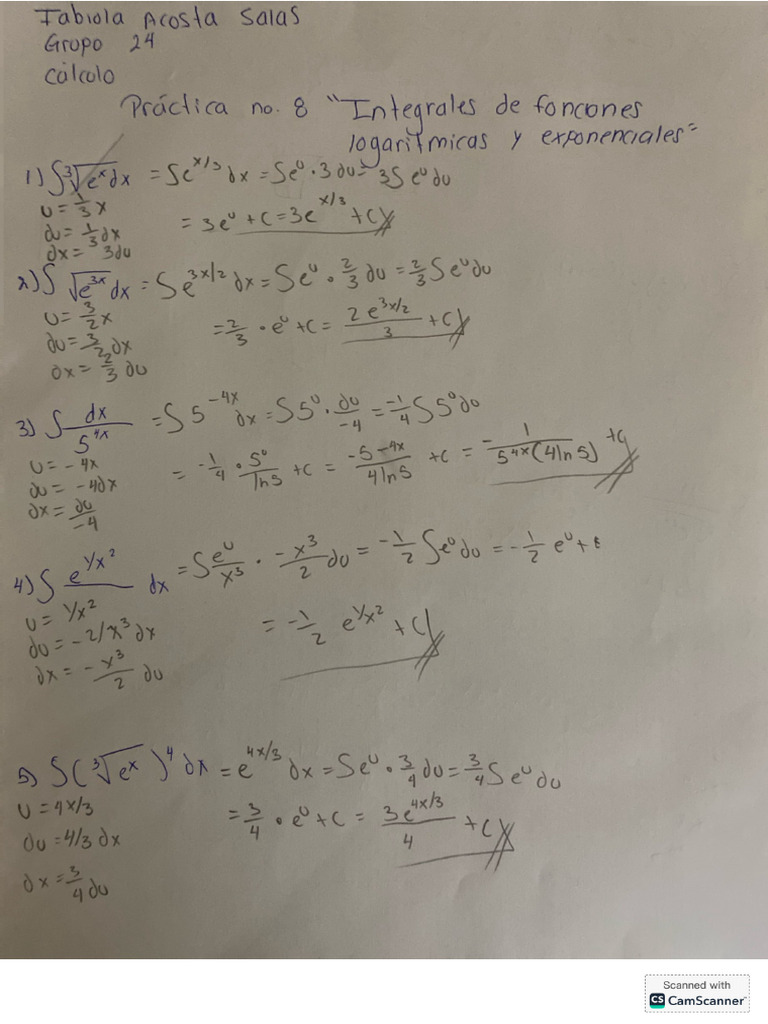 Fabiola Acosta Salas
Grupo 24
Cálculo
Práctica no. 8 "Integrales de foncones
logarítmicas y exponenciales"
1) ∫ ∛e^x dx = ∫e^x/3 dx = ∫e^u · 3du = 3∫e^u du
u = 1/3 x
du = 1/3 dx
dx = 3du
= 3e^u + C = 3e^x/3 + C
2) ∫ √e^3x dx = ∫e^3x/2 dx = ∫e^u · 2/3 du = 2/3 ∫e^u du
u = 3/2 x
du = 3/2 dx
dx = 2/3 du
= 2/3 · e^u + C = 2e^3x/2 / 3 + C
3) ∫ dx / 5^4x = ∫5^-4x dx = ∫5^u · du/-4 = -1/4 ∫5^u du
u = -4x
du = -4dx
dx = du/-4
= -1/4 · 5^u/ln5 + C = -5^-4x / 4ln5 + C = - 1 / 5^4x(4ln5) + C
4) ∫ e^1/x^2 / dx = ∫ e^u/x^3 · -x^3/2 du = -1/2 ∫e^u du = -1/2 e^u + C
u = 1/x^2
du = -2/x^3 dx
dx = -x^3/2 du
= -1/2 e^1/x^2 + C
5) ∫(∛e^x)^4 dx = e^4x/3 dx = ∫e^u · 3/4 du = 3/4 ∫e^u du
u = 4x/3
du = 4/3 dx
dx = 3/4 du
= 3/4 · e^u + C = 3e^4x/3 / 4 + C
Scanned with
CS CamScanner